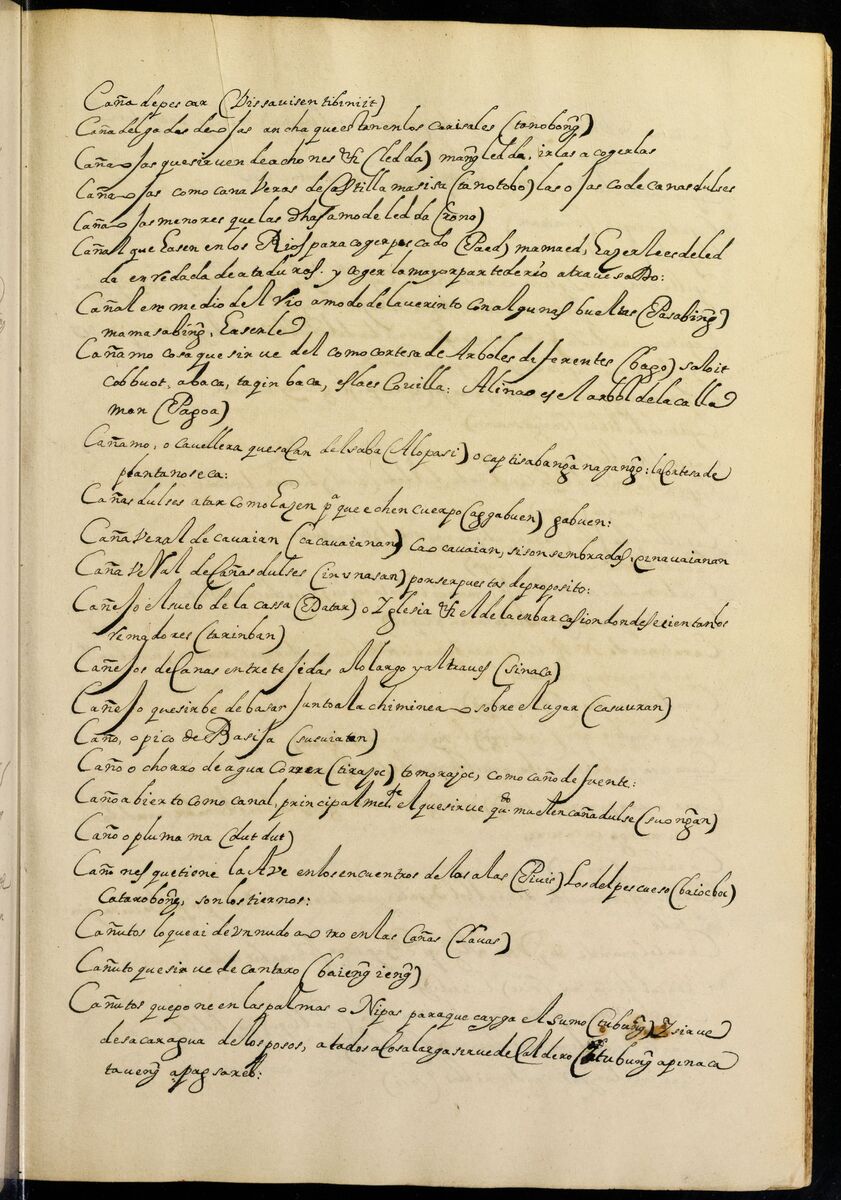 Caña de pescar (Bissavisen tibiniit)
Caña delgadas de ojas ancha que estan en los carisales (tanobong̃)
Caña o jas que siruen de achones &c (ledda) mang̃ledda, irlas a cogerlas
Caña o jas como cana veras de Castilla masisa (tanotobo) las o jas co de canas dulses
Caña o jas menores que las dhas a modo de ledda (Eono)
Cañal que Easen en los Rios para coger pescado (Paed) mamaed, Eazerlo es de led
da enredada de ataduras. y coger la mayor parte de rio atrauesado:
Cañal en medio del rio a modo de lauerinto con algunas bueltas (Pasabing̃)
mamasabing̃, Easerle
Cañamo cosa que sirue del como cortesa de Arboles diferentes (bago) saloit
cabbuot, abaca, taqin baca, esla es Couilla: Alinao es el arbol de la calla
mon (Pagoa)
Cañamo, o cauellera que sacan del saba (Alopasi) o captisabang̃a nagang̃o: la Cortesa de
plantano seca:
Cañas dulses atar como Eazen pa que echen cuerpo (aggabuen) gabuen:
Caña veral de cauaian (cacauaianan) cao cauaian, si son sembradas, qinauaianan
Caña veral de Cañas dulses (inunasan) por ser puestas de proposito:
Cañejo el suelo de la cassa (Datar) o Yglesia &c el de la enbarcasion donde se cientan los
remadores (tarinban)
Cañejos de Canas entretejidas a lo largo y al traues (sinaca)
Cañejo que sirbe de basar junto a la chiminea o sobre el lugar (casuuran)
Caño, o pico de Basija (susuiatan)
Caño o chorro de agua Correr (tirajoc) tomorajoc, como caño de fuente:
Caño abierto como canal, principalmte el que sirue qdo muelen caña dulse (suong̃an)
Caño o pluma ma (dutdut)
Cañones que tione la Ave en los encuentros de las alas (Piuis) Los del pescueso (baiocboc)
Catarobong̃, son los tiernos:
Cañutos lo que ai de vn nudo a otro en las Cañas (Lauas)
Cañuto que sirue de cantaro (baieng̃ieng̃)
Cañutos que pone en las palmas o Nipas para que cayga el sumo (tubung̃) Y sirue
de sacar agua de los posos, atados a Cosa larga sirue de Caldero (tubung̃ a pinaca
taueng̃ a pagsareb: